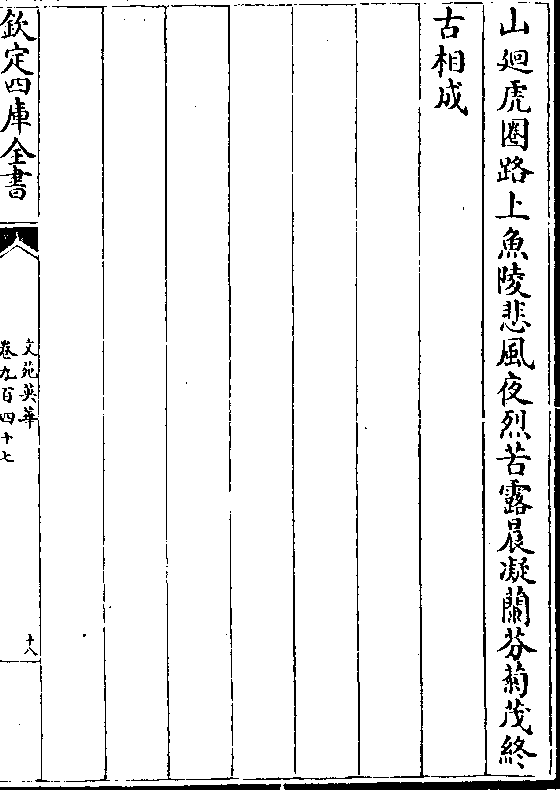 山廻虎圈路上魚陵悲風夜烈苦露晨凝蘭芬菊茂終
古相成
欽定四庫全書
文苑英華
卷九百四十七
十八